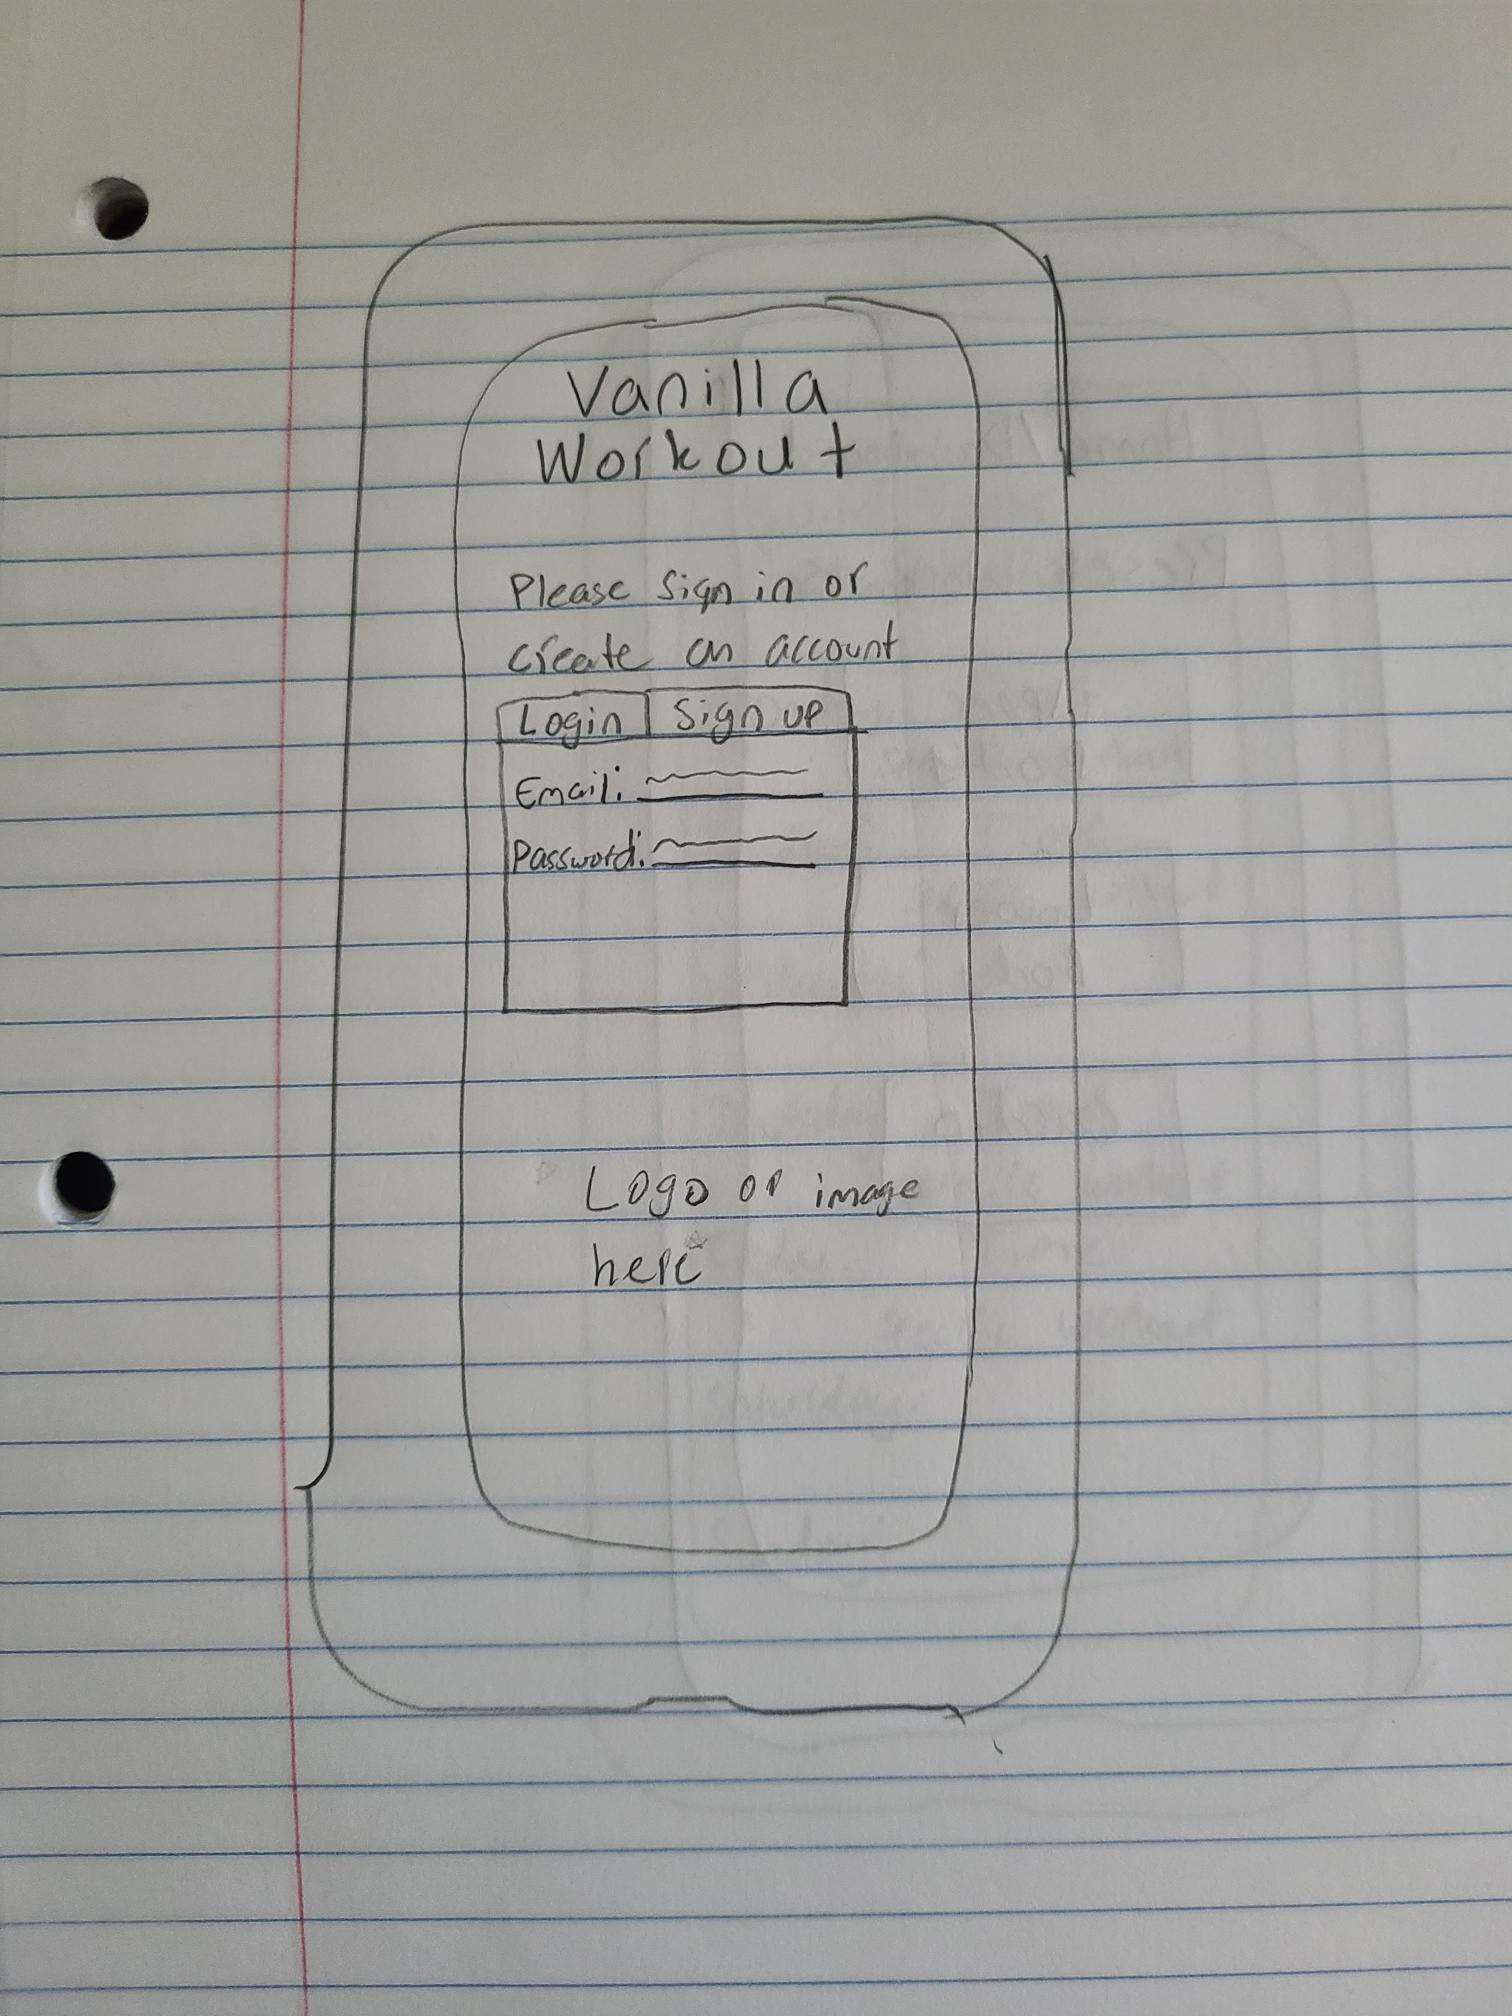 Vanilla
Workout
Please sign in or
create an account
Login Sign up
Email:
Password:
Logo or image
here